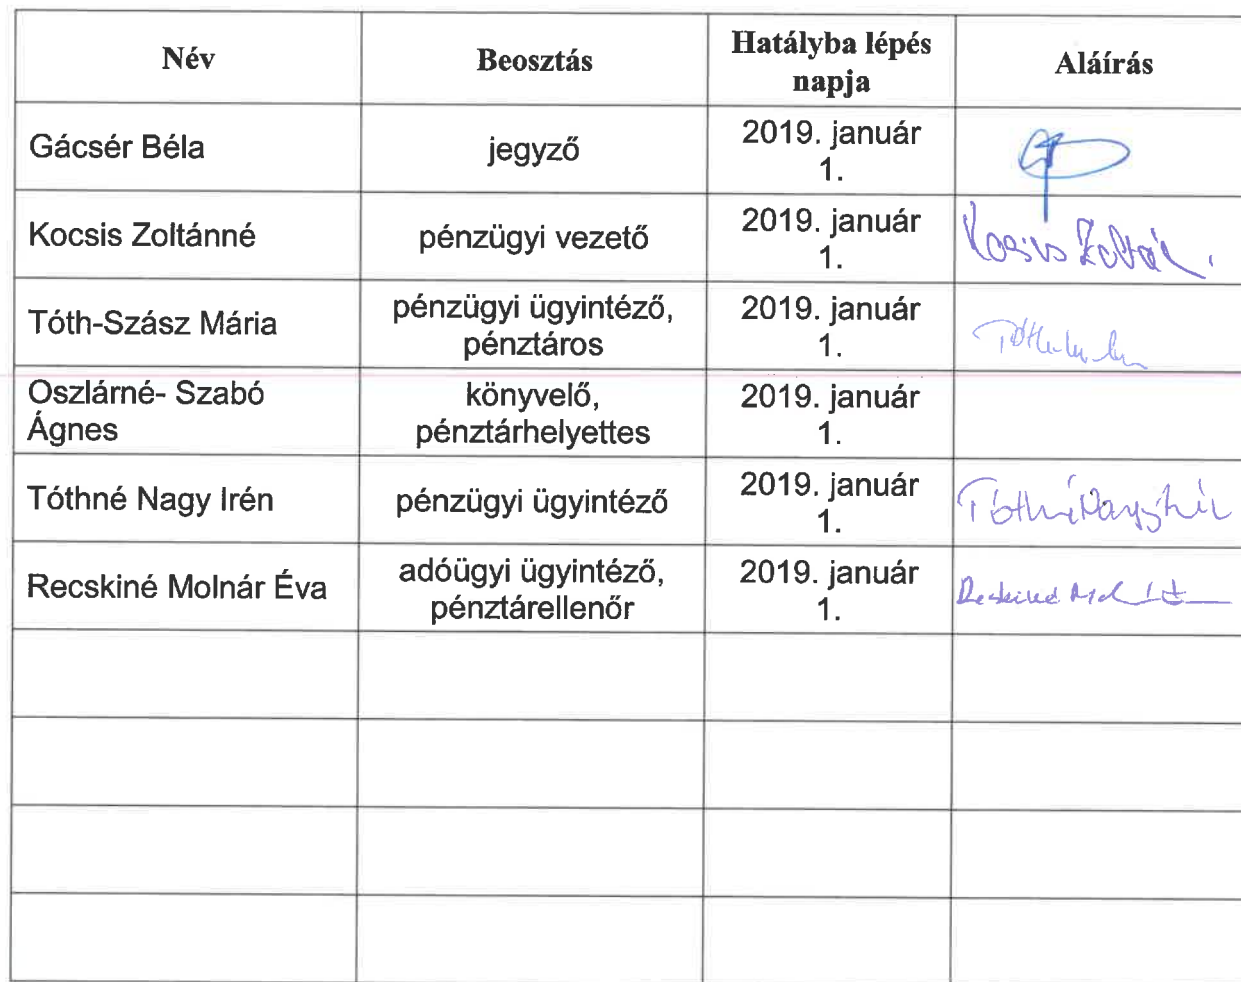 Név
Beosztás
Hatályba lépés
napja
Aláírás
Gácsér Béla
jegyző
2019. január
1.
Kocsis Zoltánné
pénzügyi vezető
2019. január
1.
Kocsis Zoltán
Tóth-Szász Mária
pénzügyi ügyintéző,
pénztáros
2019. január
1.
Oszlárné- Szabó
Ágnes
könyvelő,
pénztárhelyettes
2019. január
1.
Tóthné Nagy Irén
pénzügyi ügyintéző
2019. január
1.
Tóthné Nagy Irén
Recskiné Molnár Éva
adóügyi ügyintéző,
pénztárellenőr
2019. január
1.
Recskiné